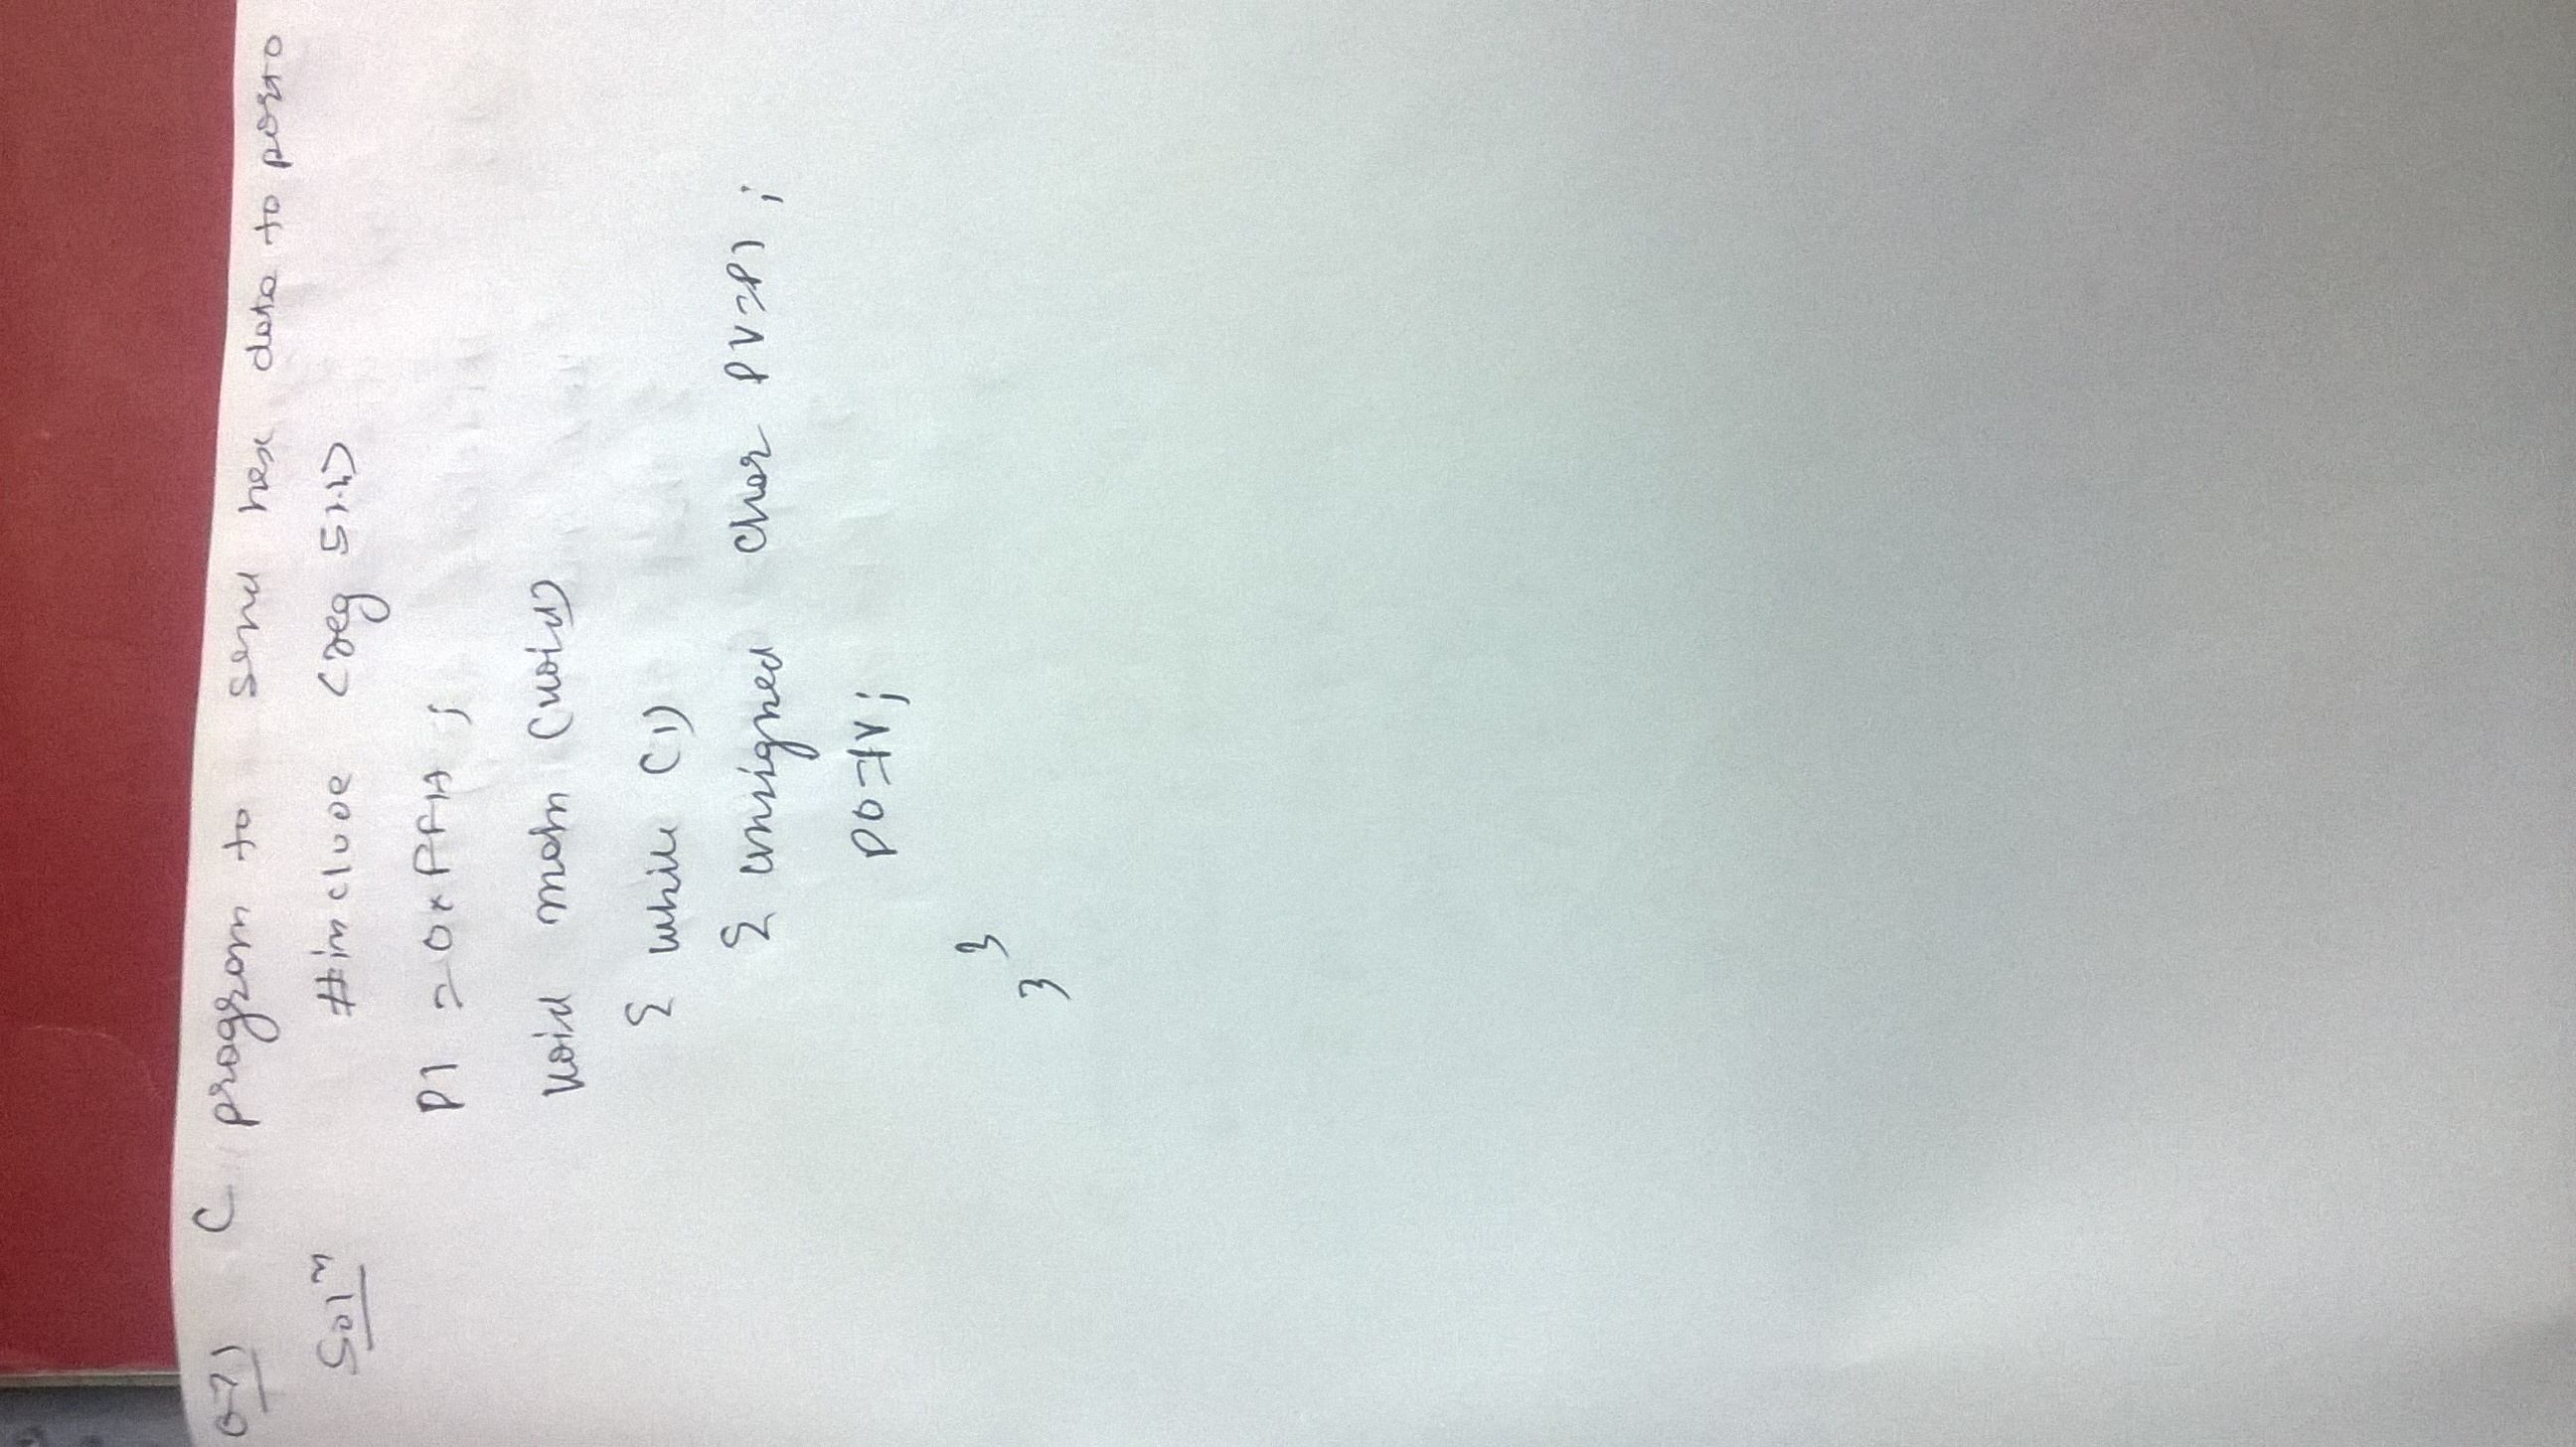 Q-7) C program to send hex data to port0
Soln #include <reg 51.h>
P1 = 0xFFH ;
void main (void)
{ while (1)
{ unsigned char PV=P1 ;
P0=PV;
}
}